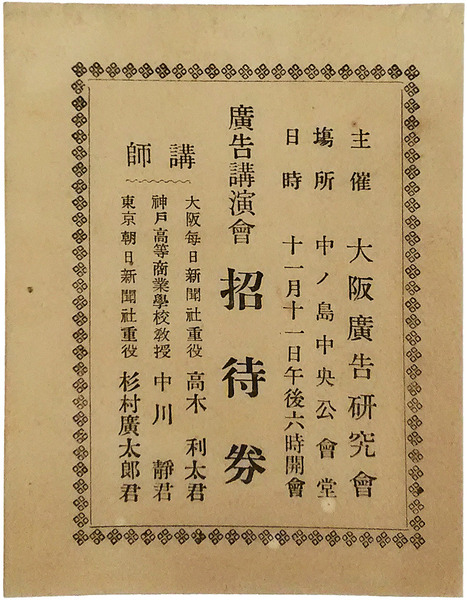 主催 大阪廣告研究會
塲所 中ノ島中央公會堂
日時 十一月十一日午後六時開會
廣告講演會 招待券
講師
大阪每日新聞社重役 高木利太君
神戸高等商業學校敎授 中川靜君
東京朝日新聞社重役 杉村廣太郎君